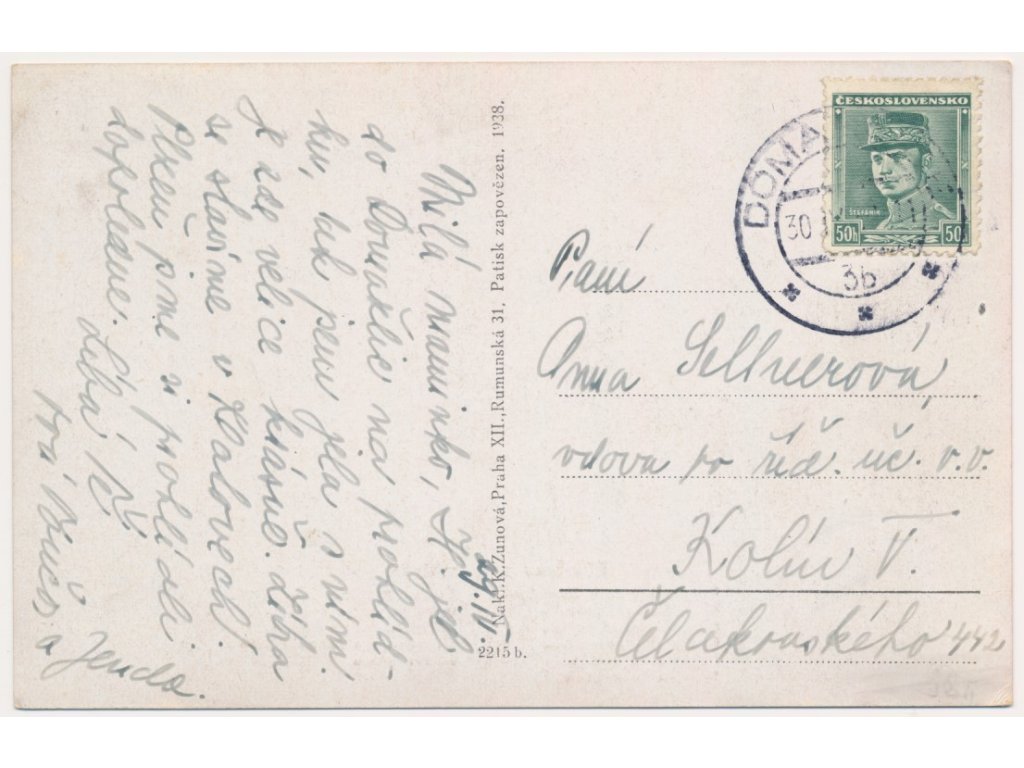 29. IV.
Milá maminko, jel
do Domažlic na prohlíd-
ku, tak jsem jela s ním.
Je zde velice krásně. Zítra
se stavíme v Kralovech.
Plzeň jsme si prohlédli
dopoledne. Líbá Tě
Tvá a
Jenda.
Nakl. K. Zunová, Praha XII., Rumunská 31. Patisk zapovězen. 1938.
2215 b.
ČESKOSLOVENSKO
ŠTEFÁNIK
50h 50h
DOMA
30
3b
Paní
Anna Sellnerová,
vdova po říd. uč. v. v.
Kolín V.
Čelakovského 442